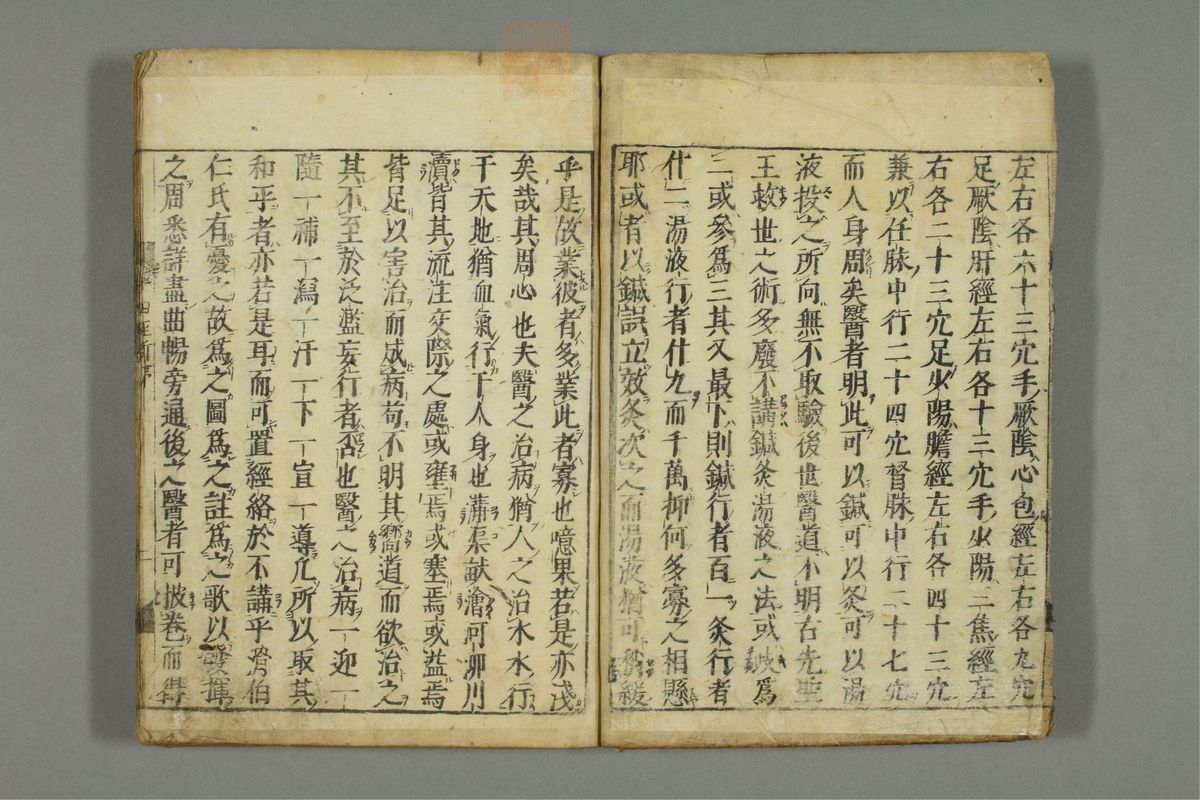 左右各六十三穴手厥陰心包經左右各九穴
足厥陰肝經左右各十三穴手少陽三焦經左
右各二十三穴足少陽膽經左右各四十三穴
兼以任脉中行二十四穴督脉中行二十七穴
而人身周矣醫者明此可以鍼可以灸可以湯
液投之所向無不取驗後世醫道不明古先聖
王救世之術多廢不講鍼灸湯液之法或岐爲
二或參爲三其又最下則鍼行者百一灸行者
什二湯液行者什九而千萬抑何多寡之相懸
耶或者以鍼誤立效灸次之而湯液猶可稍緩
乎是故業彼者多業此者寡也噫果若是亦淺
矣哉其周心也夫醫之治病猶人之治水水行
于天地猶血氣行于人身也溝渠畎澮河泖川
瀆皆其流注交際之處或壅焉或塞焉或益焉
皆足以害治而成病苟不明其嚮道而欲治之
其不至於泛濫妄行者否也醫之治病一迎一
隨一補一瀉一汗一下一宣一導凡所以取其
和乎者亦若是耳而可置經絡於不講乎滑伯
仁氏有憂之故爲之圖爲之註爲之歌以發揮
之周悉詳盡曲暢旁通後之醫者可披卷而得